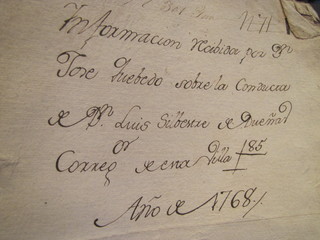 1771
Informacion recibida por Dn
Jose Quebedo sobre la Conducta
de Dn Luis Silbestre de Dueñas
Corregor de esta Villa 85
Año de 1768